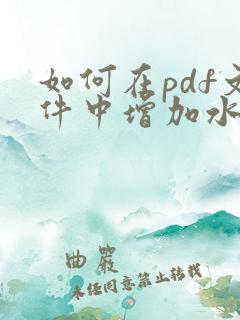 如何在pdf文
件中增加水
曲岩
未经同意禁止转载